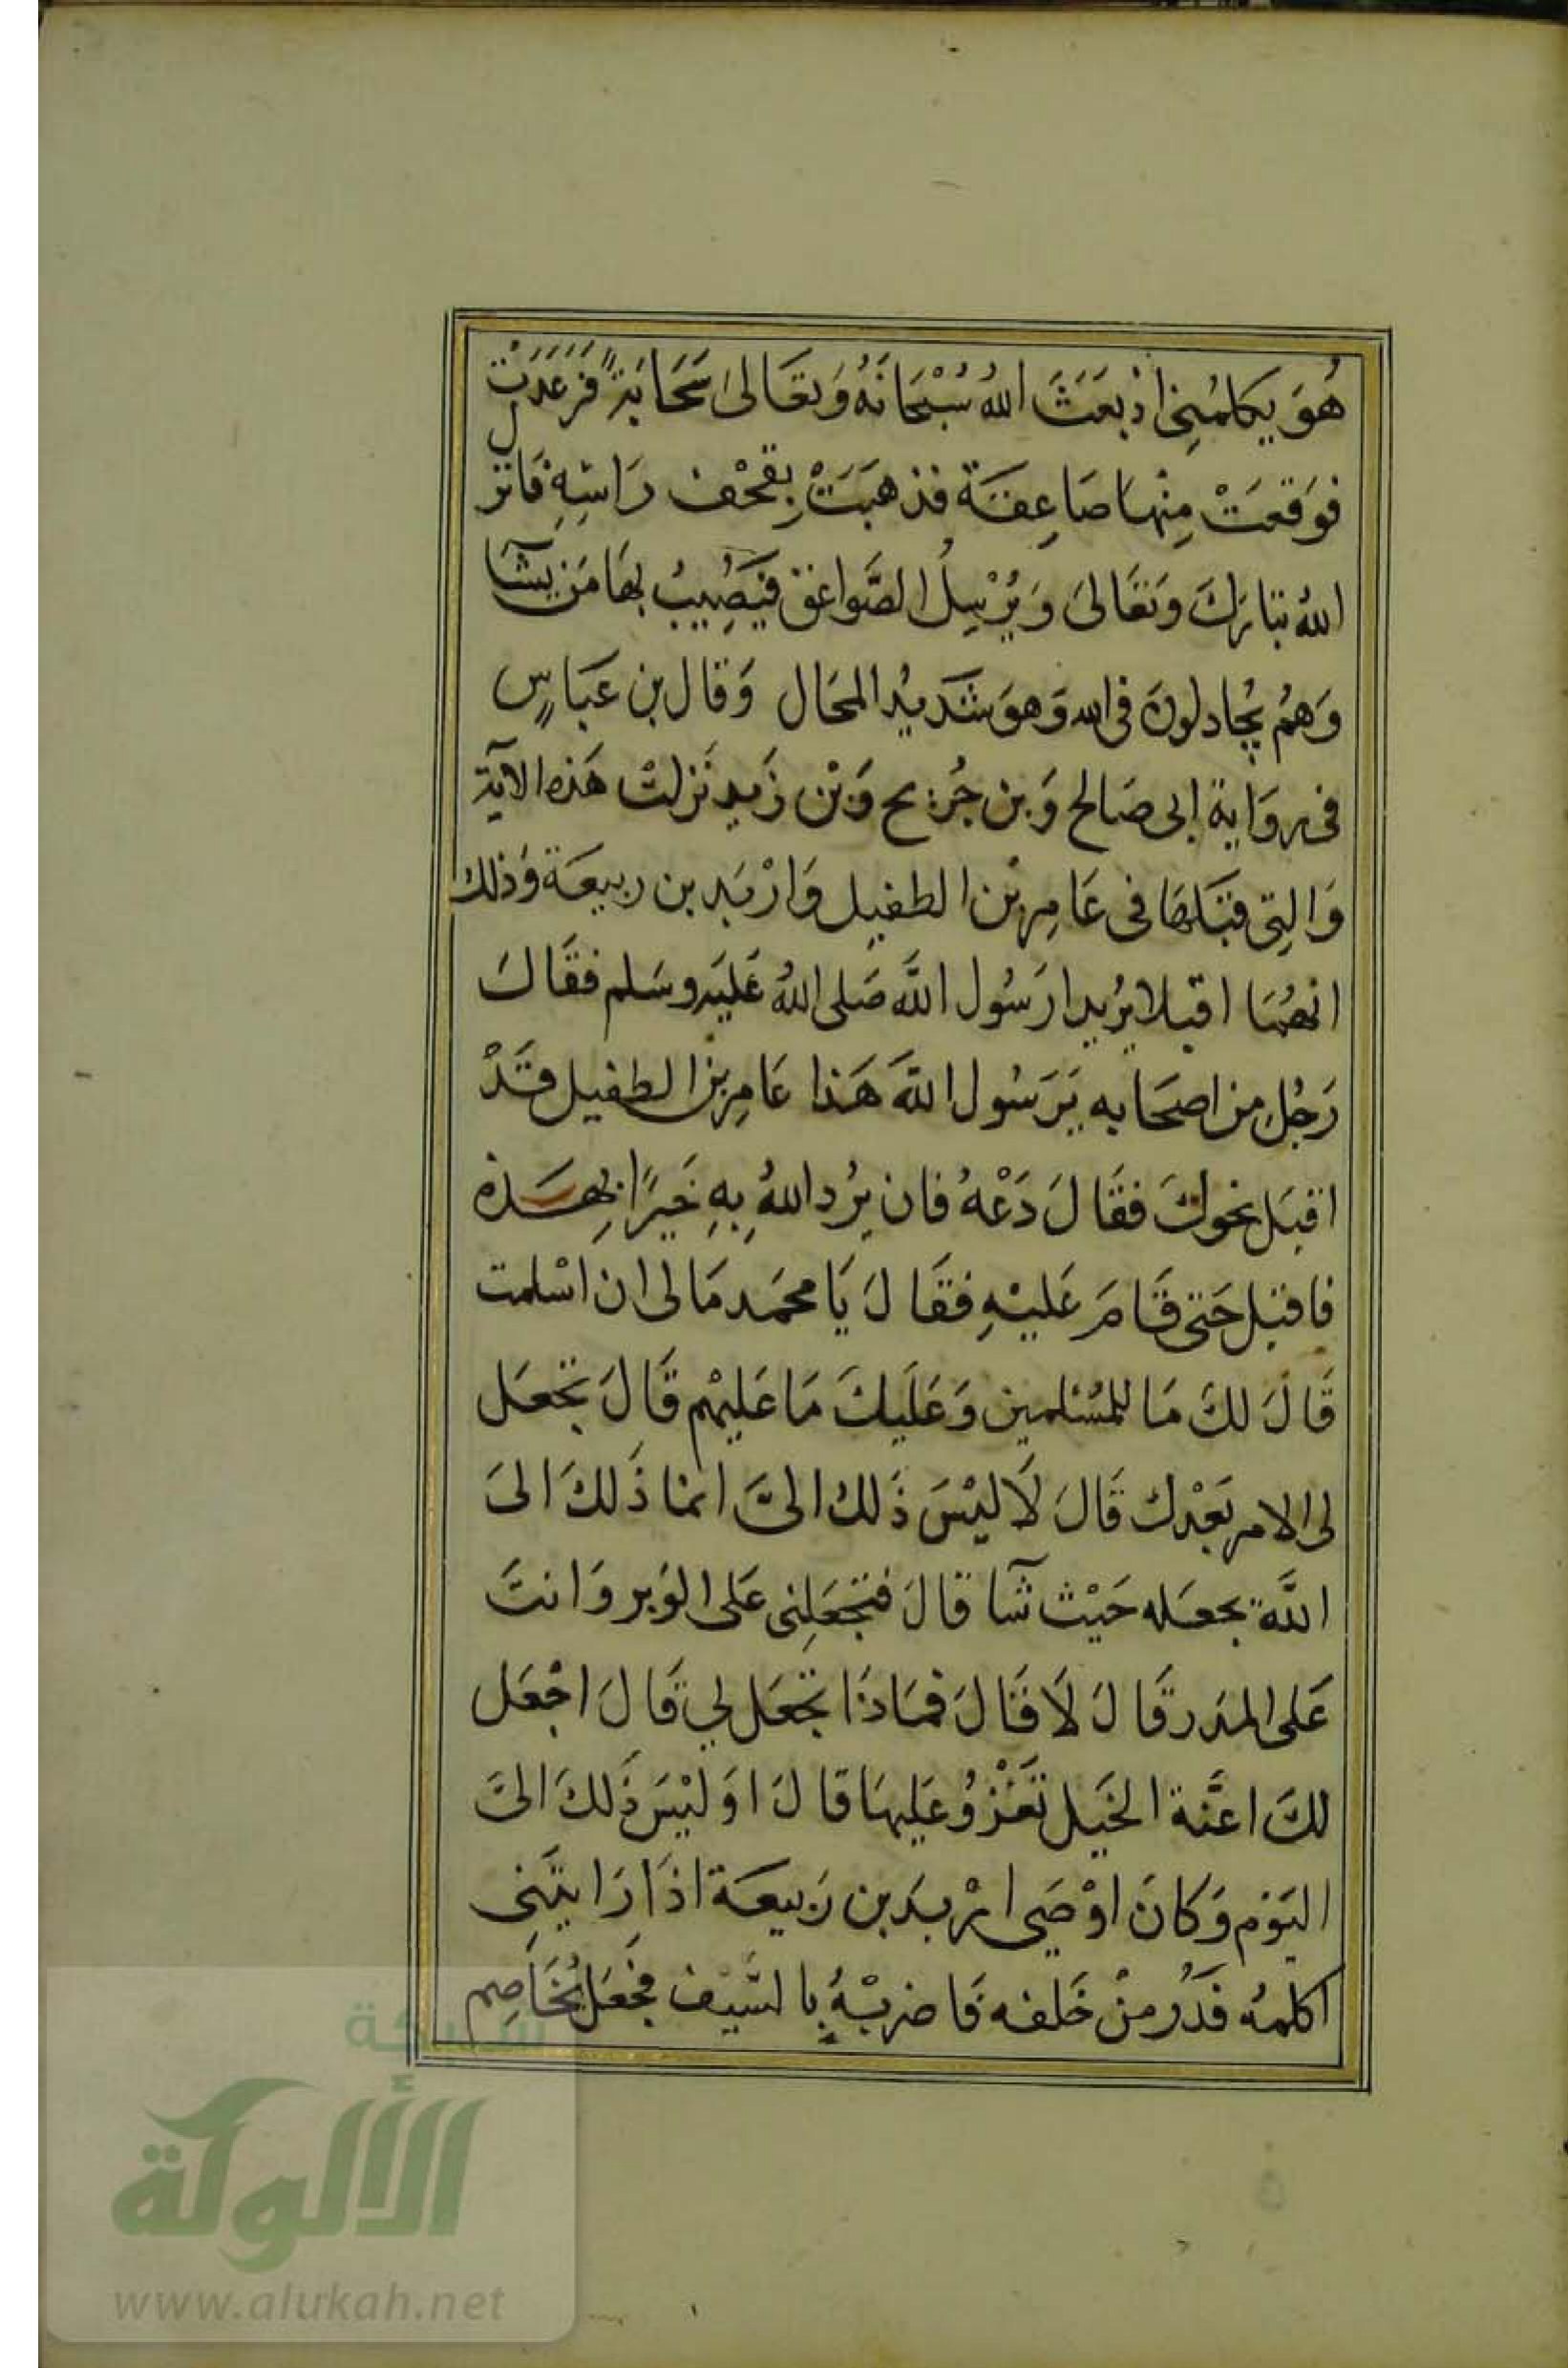 هُوَ يكلمُنِى اذ بعَثَ اللهُ سُبْحَانَهُ وَتعَالىٰ سَحَابَةً فَرَعَدَتْ
فوَقعَتْ مِنْهَا صَاعِقَة فذهبَتْ بِقحْف رَاسِهِ فَانزل
اللهُ تبَارَكَ وَتعَالىَ وَيُرْسِلُ الصَّواعق فيَصُيِبُ بهَا مَن يشآ
وَهمُ يُجادلونَ فى الله وَهوَ شَديْد المحَال وَقال بن عَبَاسٍ
فى روَاية ابى صَالح وَبن جُريح وَبْن زَيدٍ نَزلتْ هَذه الآية
وَالتِى قبَلهَا فى عَامِر بْن الطفيل وَارْبَد بن ربيعَة وَذلك
انهُمَا اقبلا يُريدا رَسُول اللَّه صَلى اللهُ عَليَه وسَلم فقَالَ
رَجُل من اصحَابه يَرَسُول اللَّه هَذا عَامِر بن الطفيل قَدْ
اقبَل نحوكَ فقَالَ دَعْهُ فان يُرد اللهُ بِهِ خَيرًا يهَده
فاقبل حَتى قَامَ عَليْهِ فقَالَ يَا محمَد مَا لى ان اسْلمت
قَالَ لكَ مَا للمُسْلمين وَعَلَيكَ مَا عَليهْم قَالَ تجعَل
لى الامر بَعْدك قَالَ لَا ليْسَ ذَلك الىَّ انما ذَلكَ الىَ
اللَّه يجعَله حَيْث شآ قالَ فتجعَلِنى عَلى الوَبر وَانتَ
عَلى المدَر قَالَ لَا قَالَ فمَاذَا تجعَل لي قَالَ اجْعَل
لكَ اعَّنة الخيَل تَغْزُو عَليهَا قالَ اوَليْسَ ذَلكَ الىَّ
اليَوْم وَكانَ اوْصَى ارْبدَ بن رَبيعَة اذَا رَايتَنِى
اكلمهُ فَدُر منْ خَلفه فَاضربْهُ بِالسَّيْف فجعَل يُخَاصِم
شبكة
الألوكة
www.alukah.net